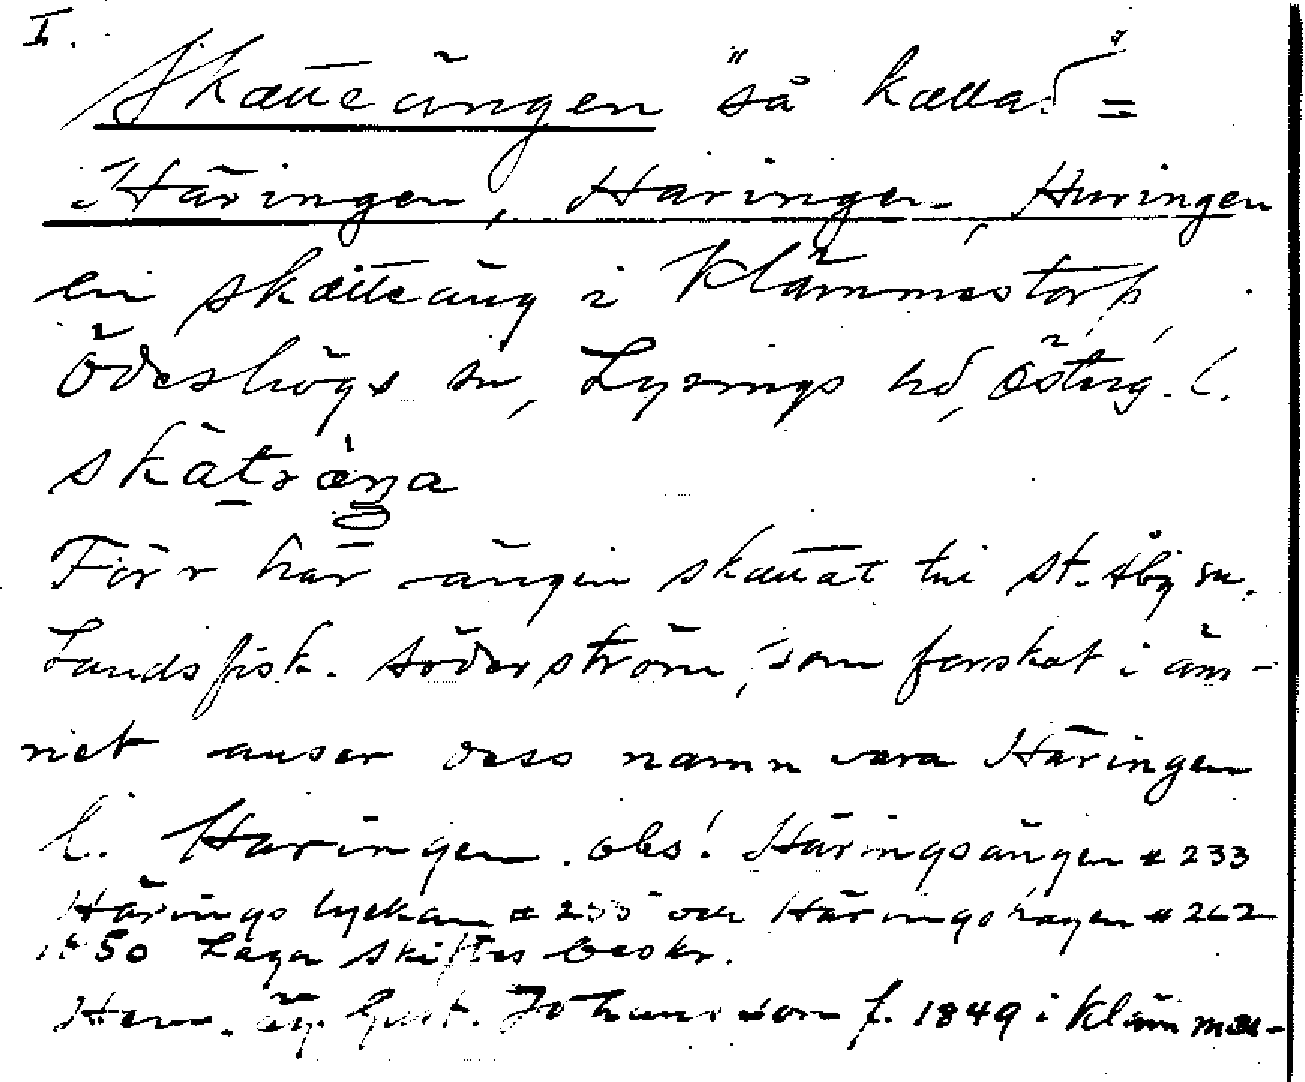 I.
Skatteängen "så kallad" =
Häringen, Haringen, Huringen
en skatteäng i Klämmestorp,
Ödeshögs sn, Lysings hd, Österg. l.
skàtræŋa
Förr har ängen skattat till St. Åby sn.
Landsfisk. Söderström, som forskat i äm-
net anser dess namn vara Häringen
l. Haringen. obs! Häringsängen # 233
Häringslyckan # och Häringshagen # 262
1850 Laga Skiftes beskr.
Hem. äg. Gust. Johansson f. 1849 i Klämmes-